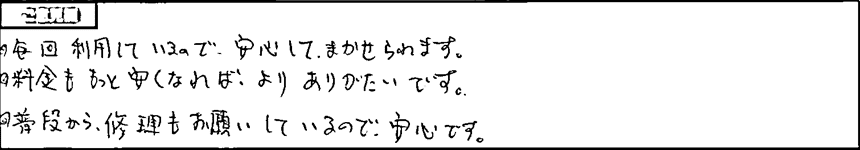 ご意見欄
毎回利用しているので、安心して、まかせられます。
料金ももっと安くなれば、よりありがたいです。
普段から、修理もお願いしているので、安心です。